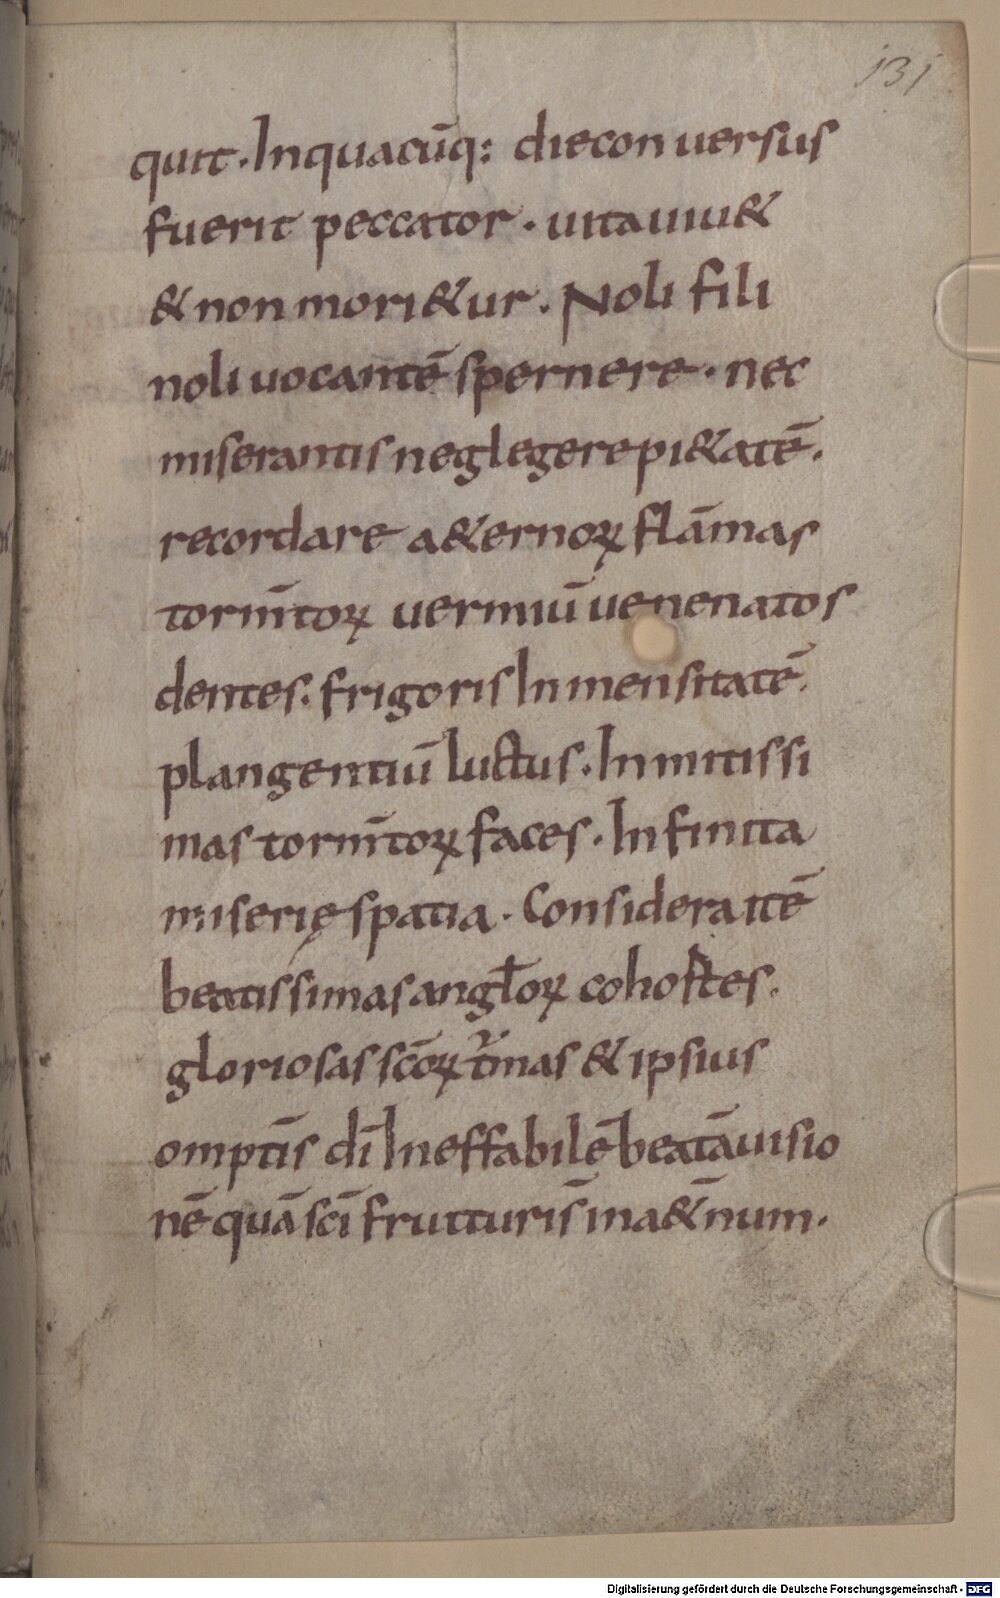 131
quit. Inquacūq: dieconuersus
fuerit peccator. uitauiu&
& non mori&ur. Noli fili
noli uocantē spernere. nec
miserantis neglegere pi&atē.
recordare a&ernoꝝ flāmas
torm̄toꝝ uermiū uenenatos
dentes. frigoris Inmensitatē.
plangentiū luctus. Inmitissi
mas torm̄toꝝ faces. Infinita
miserię spatia. Considera itē
beatissimas angl̄oꝝ cohoſtes.
gloriosas sc̄oꝝ t̄mas & ipsius
omptīs dī Ineffabilē beatā uisio
nē quā sc̄i frutturis̄ ina&̄num.
Digitalisierung gefördert durch die Deutsche Forschungsgemeinschaft - DFG